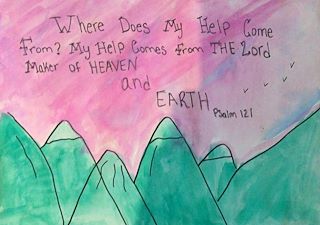 Where Does My Help Come
From? My Help Comes from THE Lord
Maker of HEAVEN
and
EARTH
Psalm 121